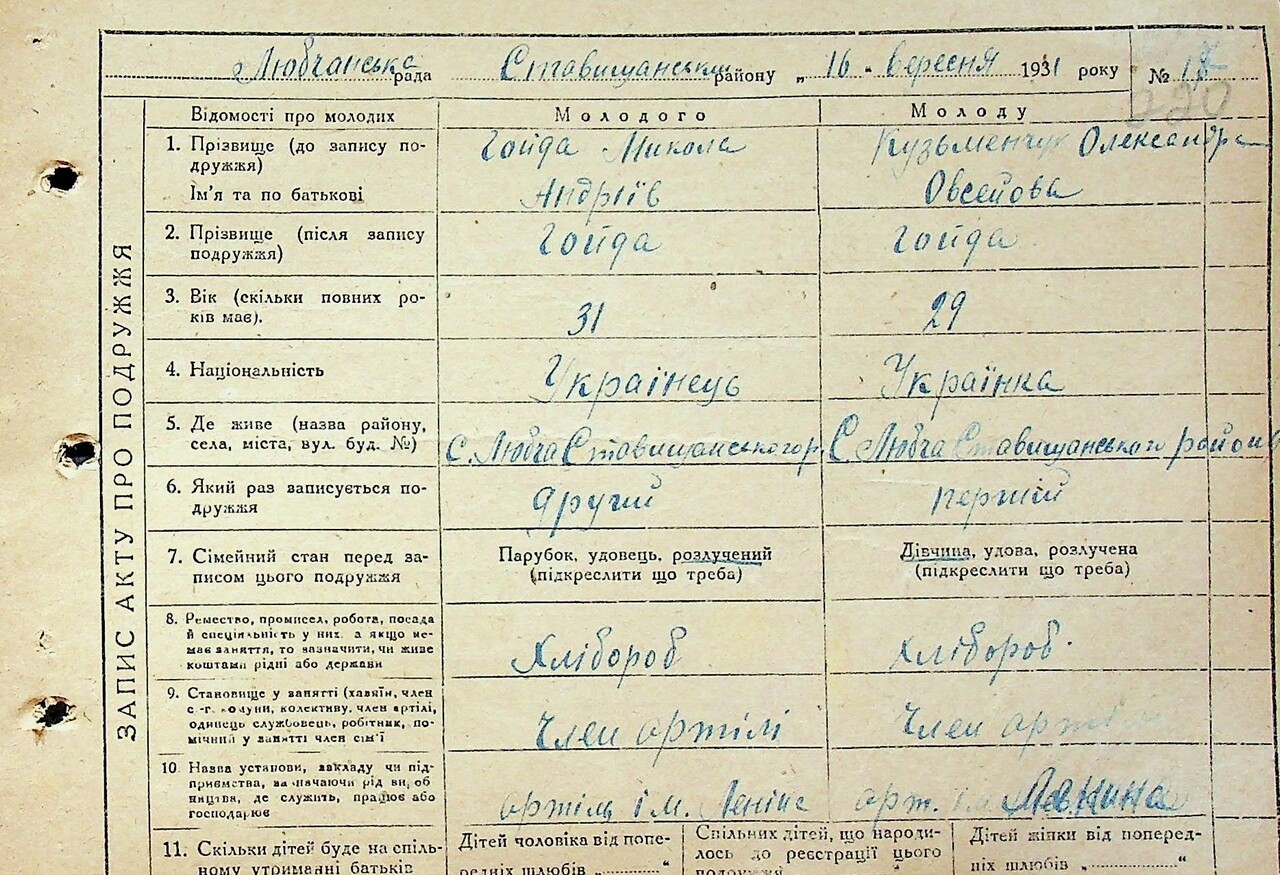 Любчанська рада Ставищанський району „ 16 „ вересня 1931 року № 17
220
ЗАПИС АКТУ ПРО ПОДРУЖЖЯ
Відомості про молодих Молодого Молоду
1. Прізвище (до запису по- Гойда Микола Кузьменчук Олександра
дружжя)
Ім'я та по батькові Андріїв Овсейова
2. Прізвище (після запису Гойда Гойда
подружжя)
3. Вік (скільки повних ро- 31 29
ків має).
4. Національність Українець Українка
5. Де живе (назва району, с. Любча Ставищанського р. С. Любча Ставищанського району
села, міста, вул. буд. №)
6. Який раз записується по- другий першій
дружжя
7. Сімейний стан перед за- Парубок, удовець, розлучений Дівчина, удова, розлучена
писом цього подружжя (підкреслити що треба) (підкреслити що треба)
8. Ремество, промисел, робота, посада
й спеціяльність у них, а якщо не-
має заняття, то зазначити, чи живе Хлібороб хлібороб.
коштами рідні або держави
9. Становище у занятті (хазяїн, член
с.-г. комуни, колективу, член артілі, Член артілі Член арті
одинець службовець, робітник, по-
мічний у занятті член сім'ї
10. Назва установи, закладу чи під-
приємства, зазначаючи рід ви об
ництва, де служить, працює або артіль ім. Леніна арт. ім Ленина
господарює
11. Скільки дітей буде на спіль- Дітей чоловіка від попе- Спільних дітей, що народи- Дітей жінки від поперед-
ному утриманні батьків редніх шлюбів „ “ лось до реєстрації цього ніх шлюбів „ “
подружжя